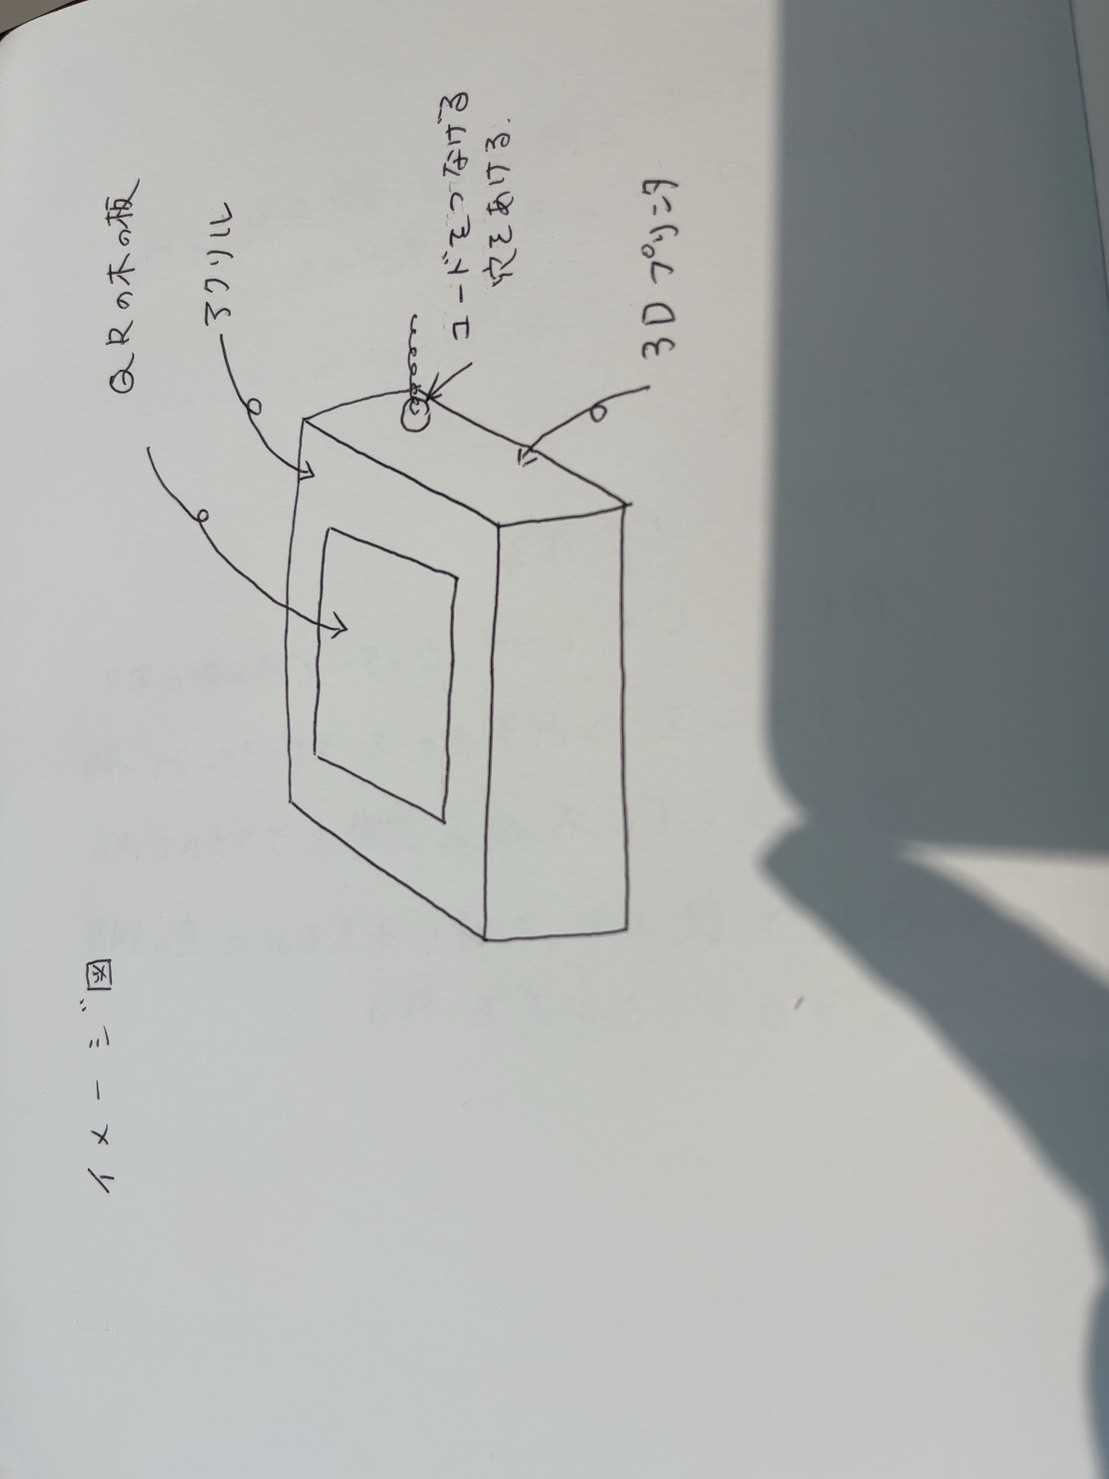 イメージ図
QRの木の板
アクリル
コードをつなげる
穴をあける.
3Dプリンタ